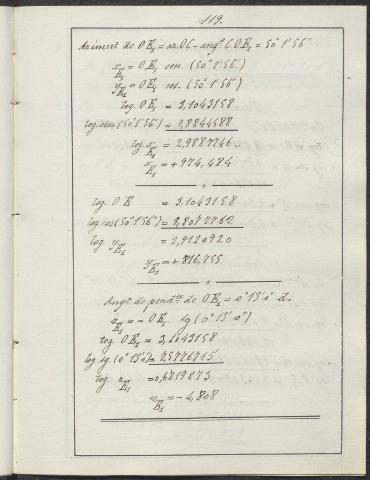 119.
Azimut de OE₁ = az. OC - ang. COE₁ = 50° 1' 56"
x E₁ = OE₁ sen. (50° 1' 56")
y E₁ = OE₁ cos. (50° 1' 56")
log. OE₁ = 3,1043158
log. sen (50° 1' 56") = 1,8844588
log. x E₁ = 2,9887746
x E₁ = + 974,484
log. OE = 3,1043158
log cos (50° 1' 56") = 9,8077762
log y E₁ = 2,9120920
y E₁ = + 816,755
Angº de pend.te de OE₁ = 0° 13' 0" d.
z E₁ = - OE₁ tg (0° 13' 0")
log OE₁ = 3,1043158
log tg. (0° 13' 0") = 7,5776715
log. z E₁ = 0,6819873
z E₁ = - 4,808